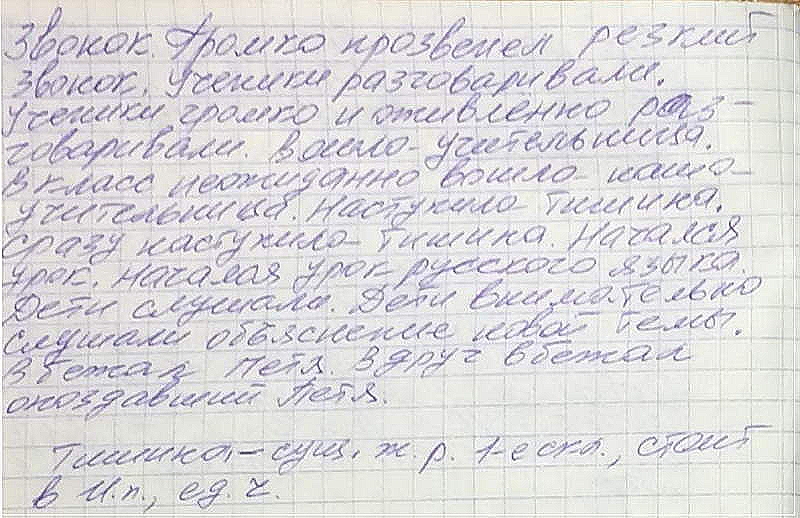 Звонок. Громко прозвенел резкий
звонок. Ученики разговаривали.
Ученики громко и оживлённо раз-
говаривали. Вошла учительница.
В класс неожиданно вошла наша
учительница. Наступила тишина.
Сразу наступила тишина. Начался
урок. Начался урок русского языка.
Дети слушали. Дети внимательно
слушали объяснение новой темы.
Вбежал Петя. Вдруг вбежал
опоздавший Петя.
Тишина – сущ. ж. р. 1-е скл., стоит
в И.п., ед. ч.